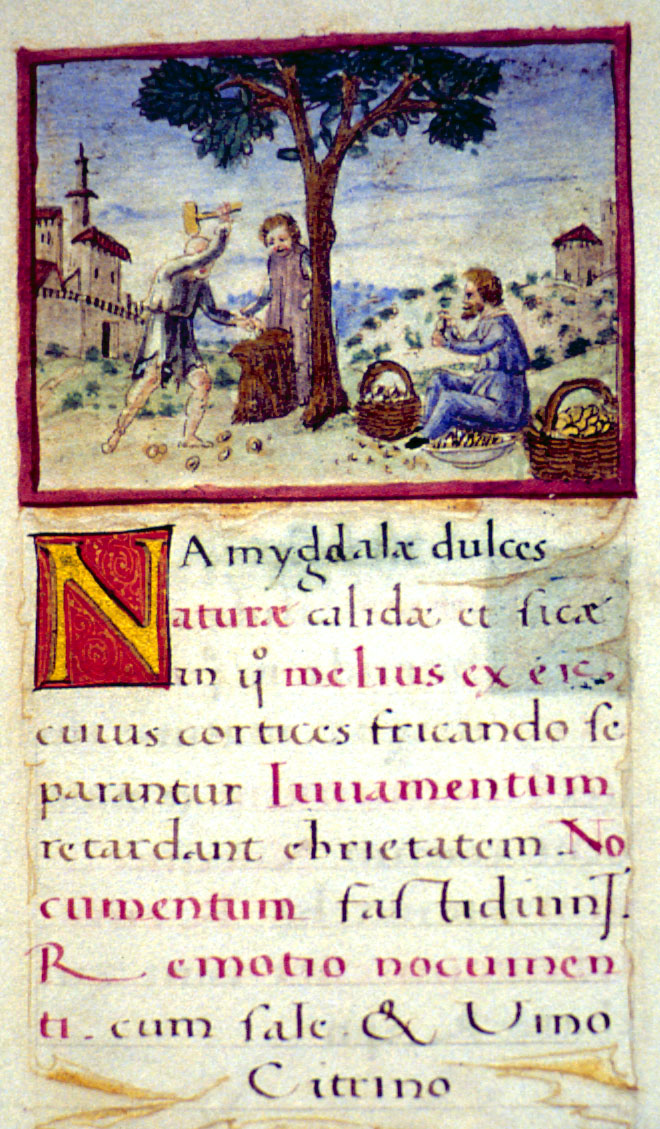 Amygdalæ dulces
Naturæ calidæ et sicæ
in q̊ melius ex eis,
cuius cortices fricando se
parantur Iuuamentum
retardant ebrietatem. No
cumentum fastidium.
Remotio nocumen
ti. cum sale. & Vino
Citrino